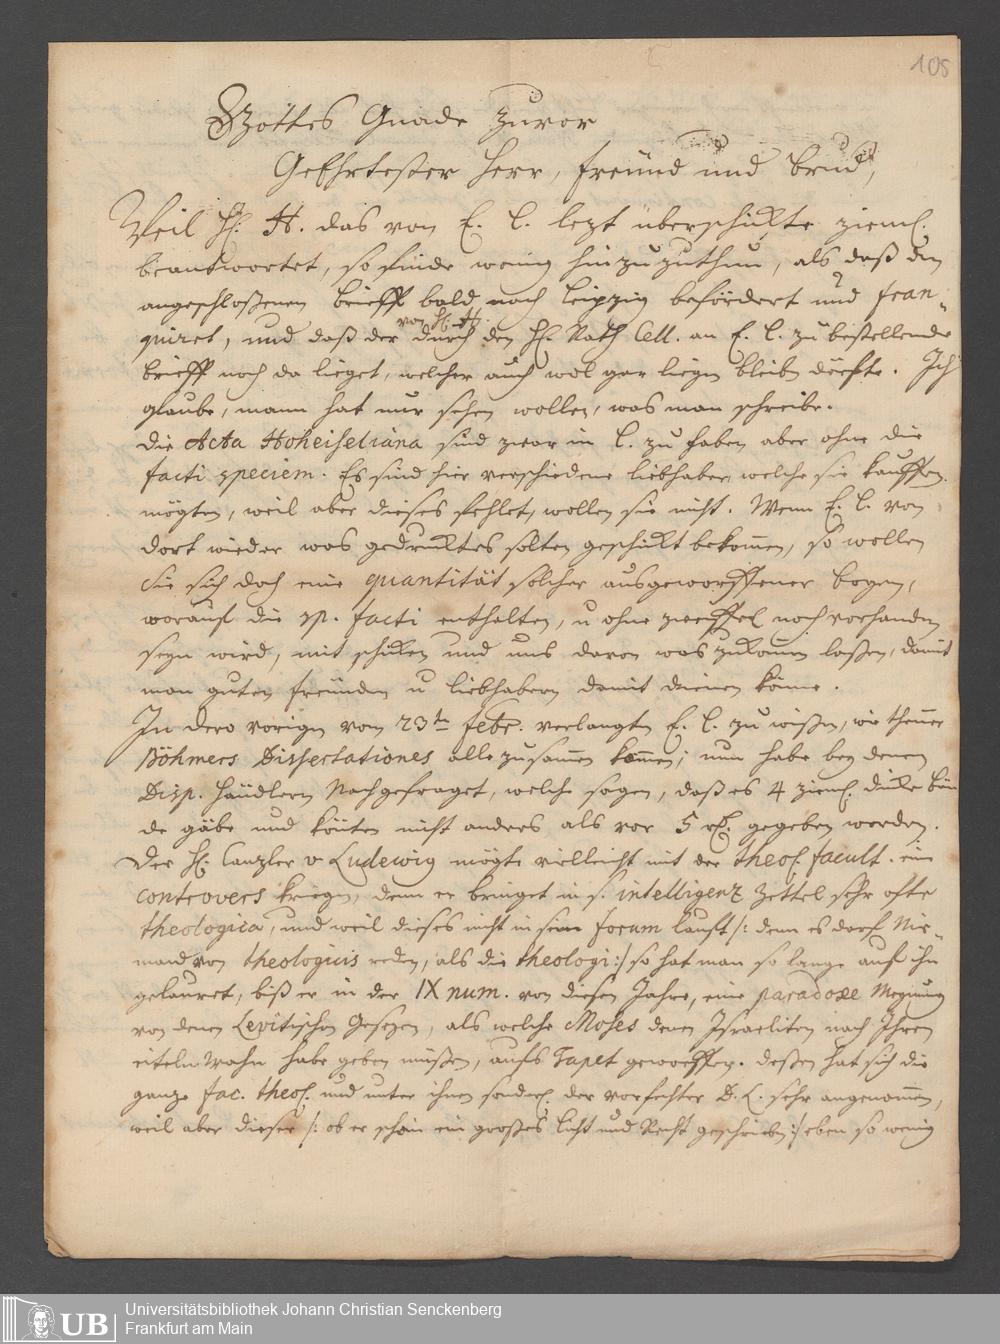 105
Gottes Gnade zuvor
Geehrtester Herr, Freund und Brud.,
Weil H. H. das von E. L. lezt überschikte zieml.
beantwortet, so finde wenig hinzuzuthun, als daß den
angeschloßenen brieff bald nach Leipzig befördert und fran-
von H. H.
quiret, und daß der durch den H. Rath Cell. an E. L. zu bestellende
brieff noch da lieget, welcher auch wol gar liegen bleiben dörfte. Ich
glaube, mann hat nur sehen wollen, was man schreibe.
Die Acta Hoheiseliana sind zwar in L. zu haben aber ohne die
facti speciem. Es sind hier verschiedene liebhaber, welche sie kauffen
mögten, weil aber dieses fehlet, wollen sie nicht. Wenn E. L. von
dort wieder was gedruktes solten geschikt bekommen, so wollen
Sie sich doch eine quantität solcher ausgeworffener bogen,
worauf die sp. facti enthalten, u ohne zweiffel noch vorhanden
seyn wird, mit schiken und uns davon was zukommen laßen, damit
man guten freunden u liebhabern damit dienen könne.
In dero vorigen vom 23ten Febr. verlangten E. L. zu wißen, wie theuer
Böhmers Dissertationes alle zusammen kommen; nun habe bey denen
Disp. Händlern Nachgefraget, welche sagen, daß es 4 zieml. dicke bän
de gäbe und könten nicht anders als vor 5 rl. gegeben werden.
Der H. Canzler v Ludewig mögte vielleicht mit der theol. facult. eine
controvers kriegen, denn er bringet in s. intelligenz Zettel sehr ofte
theologica, und weil dieses nicht in sein forum lauft /: denn es darf Nie-
mand von theologicis reden, als die theologi :/ so hat man so lange auf ihn
gelauret, biß er in der IX num. von diesem Jahre, eine paradoxe Meynung
von denen Levitischen Gesezen, als welche Moses denen Israeliten nach Ihrem
eiteln Wahn habe geben müßen, aufs Tapet geworffen. deßen hat sich die
ganze fac. theol. und unter ihnen sonderl. der vorfechter D. L. sehr angenommen,
weil aber dieser /: ob er schon ein großes licht und Recht geschrieben :/ eben so wenig
UB
Universitätsbibliothek Johann Christian Senckenberg
Frankfurt am Main